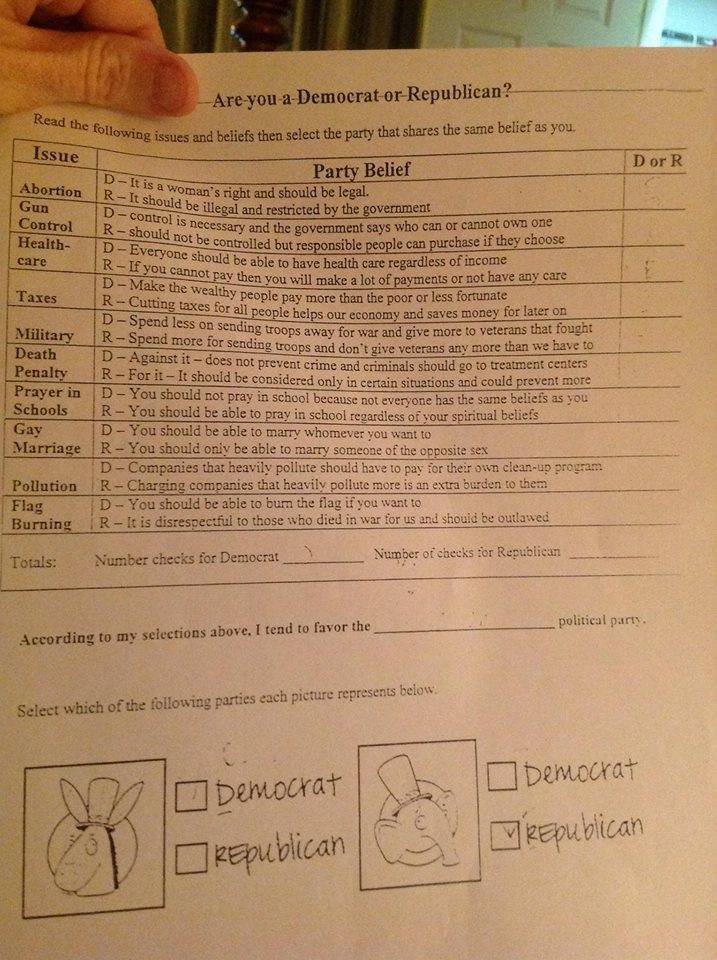 Are you a Democrat or Republican?
Read the following issues and beliefs then select the party that shares the same belief as you.
Issue Party Belief D or R
Abortion D – It is a woman's right and should be legal.
R – It should be illegal and restricted by the government
Gun Control D – control is necessary and the government says who can or cannot own one
R – should not be controlled but responsible people can purchase if they choose
Health-care D – Everyone should be able to have health care regardless of income
R – If you cannot pay then you will make a lot of payments or not have any care
Taxes D – Make the wealthy people pay more than the poor or less fortunate
R – Cutting taxes for all people helps our economy and saves money for later on
Military D – Spend less on sending troops away for war and give more to veterans that fought
R – Spend more for sending troops and don't give veterans any more than we have to
Death Penalty D – Against it – does not prevent crime and criminals should go to treatment centers
R – For it – It should be considered only in certain situations and could prevent more
Prayer in Schools D – You should not pray in school because not everyone has the same beliefs as you
R – You should be able to pray in school regardless of your spiritual beliefs
Gay Marriage D – You should be able to marry whomever you want to
R – You should only be able to marry someone of the opposite sex
Pollution D – Companies that heavily pollute should have to pay for their own clean-up program
R – Charging companies that heavily pollute more is an extra burden to them
Flag Burning D – You should be able to burn the flag if you want to
R – It is disrespectful to those who died in war for us and should be outlawed
Totals: Number checks for Democrat ________ Number of checks for Republican ________
According to my selections above, I tend to favor the ____________________ political party.
Select which of the following parties each picture represents below.
Democrat
Republican
Democrat
Republican